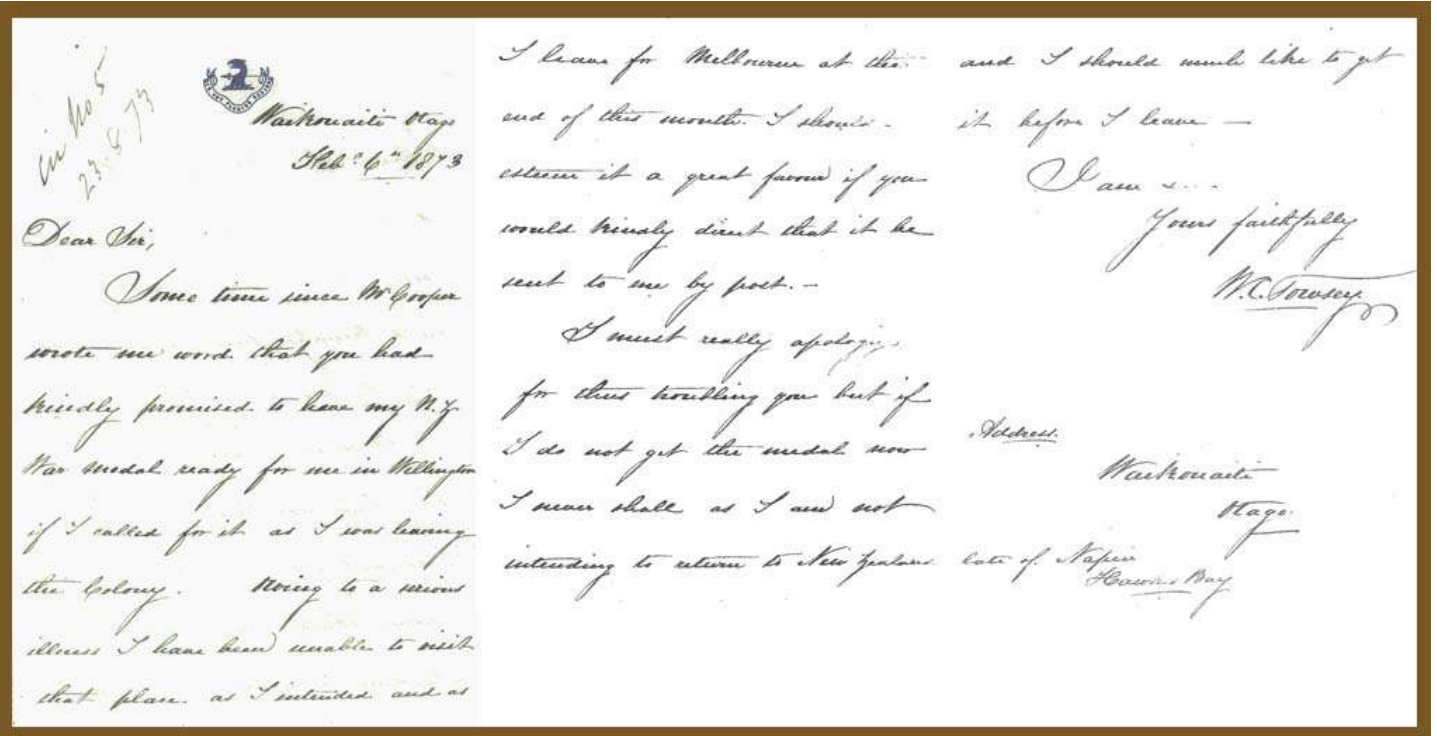 in No 5
23.5.73
Waikouaiti Otago
Feby 6th 1873
Dear Sir,
Some time since Mr Cooper
wrote me word that you had
kindly promised to have my N.Z.
War medal ready for me in Wellington
if I called for it as I was leaving
the Colony. Owing to a serious
illness I have been unable to visit
that place as I intended and as
I leave for Melbourne at the
end of this month. I should
esteem it a great favour if you
would kindly direct that it be
sent to me by post. -
I must really apologize
for thus troubling you but if
I do not get the medal now
I never shall as I am not
intending to return to New Zealand
and I should much like to get
it before I leave —
I am
Yours faithfully
W.C. Towsey
Address.
Waikouaiti
Otago.
late of Napier
Hawkes Bay